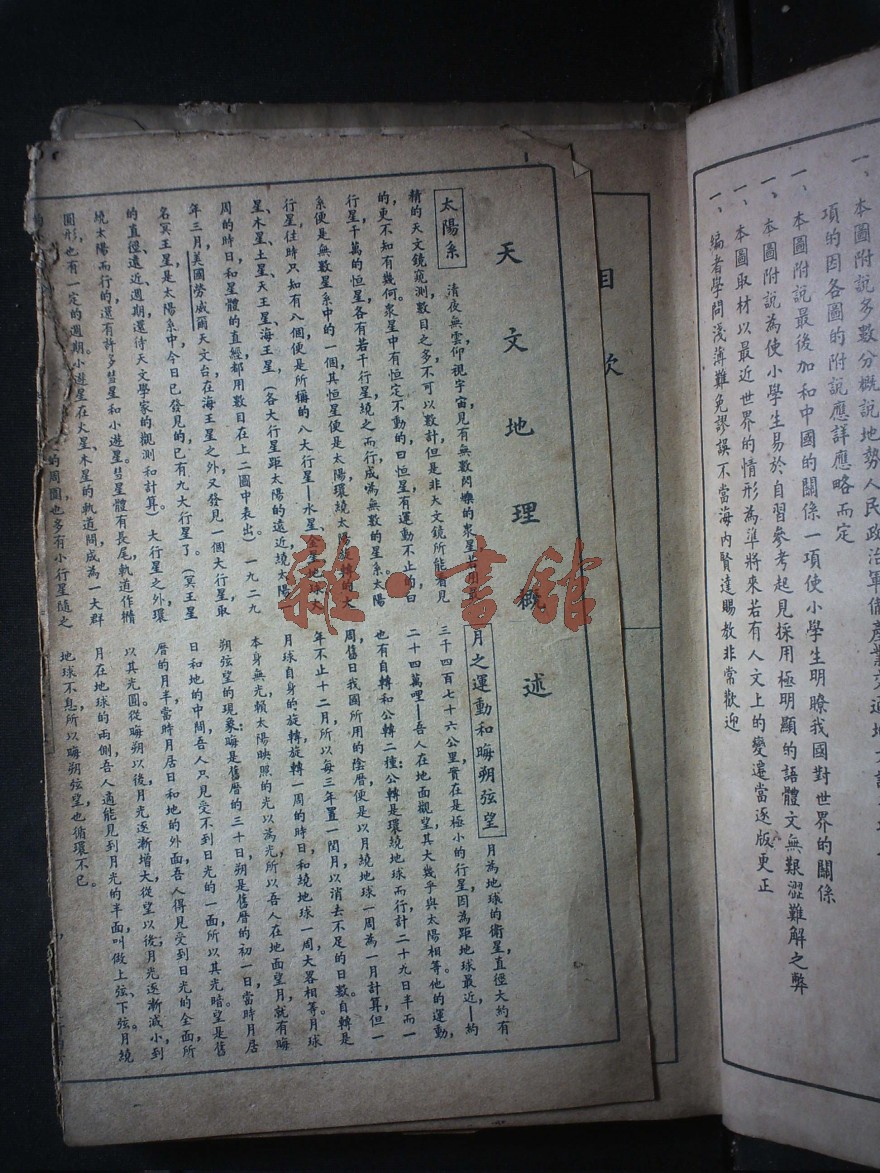 一、本圖附說多數分概說地勢人民政治軍備產業交通地方誌
項的因各圖的附說應詳應略而定
一、本圖附說最後加和中國的關係一項使小學生明瞭我國對世界的關係
一、本圖附說為使小學生易於自習參考起見採用極明顯的語體文無艱澀難解之弊
一、本圖取材以最近世界的情形為準將來若有人文上的變遷當逐版更正
一、編者學問淺薄難免謬誤不當海內賢達賜教非常歡迎
目次
天文地理概述
太陽系 清夜無雲仰視宇宙見有無數閃爍的衆星若用最
精的天文鏡窺測數目之多不可以數計但是非天文鏡所能看見
的更不知有幾何。衆星中有恒定不動的曰恒星有運動不止的曰
行星千萬的恒星各有若干行星繞之而行成為無數的星系。太陽
系便是無數星系中的一個其恒星便是太陽環繞太陽旋轉的大
行星往時只知有八個便是所稱的八大行星—水星、金星、地球、火
星、木星、土星、天王星、海王星，（各大行星距太陽的遠近繞太陽一
周的時日，和星體的直經，都用數目在上二圖中表出。）一九二九
年三月美國勞威爾天文台在海王星之外又發見一個大行星，取
名冥王星，是太陽系中今日已發見的已有九大行星了。（冥王星
的直徑、遠近、週期，還待天文學家的觀測和計算。）大行星之外，環
繞太陽而行的，還有許多彗星和小遊星。彗星體有長尾，軌道作橢
圓形，也有一定的週期小遊星在火星、木星的軌道間成為一大群
的周圍也多有小行星隨之
月之運動和晦朔弦望 月為地球的衛星，直徑大約有
三千四百七十六公里，實在是極小的行星，因為距地球最近，—約
二十四萬哩—吾人在地面觀望，其大幾乎與太陽相等。他的運動，
也有自轉和公轉二種：公轉是環繞地球而行，計二十九日半而一
周，舊日我國所用的陰曆，便是以月繞地球一周為一月計算，但一
年不止十二月，所以每三年置一閏月，以消去不足的日數，自轉是
月球自身的旋轉，旋轉一周的時日，和繞地球一周，大畧相等。月球
本身無光，賴太陽映照的光以為光，所以吾人在地面望月，就有晦
朔弦望的現象：晦是舊曆的三十日，朔是舊曆的初一日，當時月居
日和地的中間，吾人只見受不到日光的一面，所以其光暗，望是舊
曆的月半，當時月居日和地的外面，吾人得見受到日光的全面，所
以其光圓。從晦朔以後，月光逐漸增大，從望以後，月光逐漸減小，到
月在地球的兩側，吾人適能見到月光的半面，叫做上弦、下弦，月繞
地球不息，所以晦朔弦望，也循環不已。
雜·書館